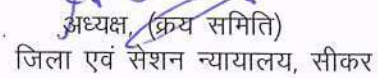 अध्यक्ष, (क्रय समिति)
जिला एवं सेशन न्यायालय, सीकर